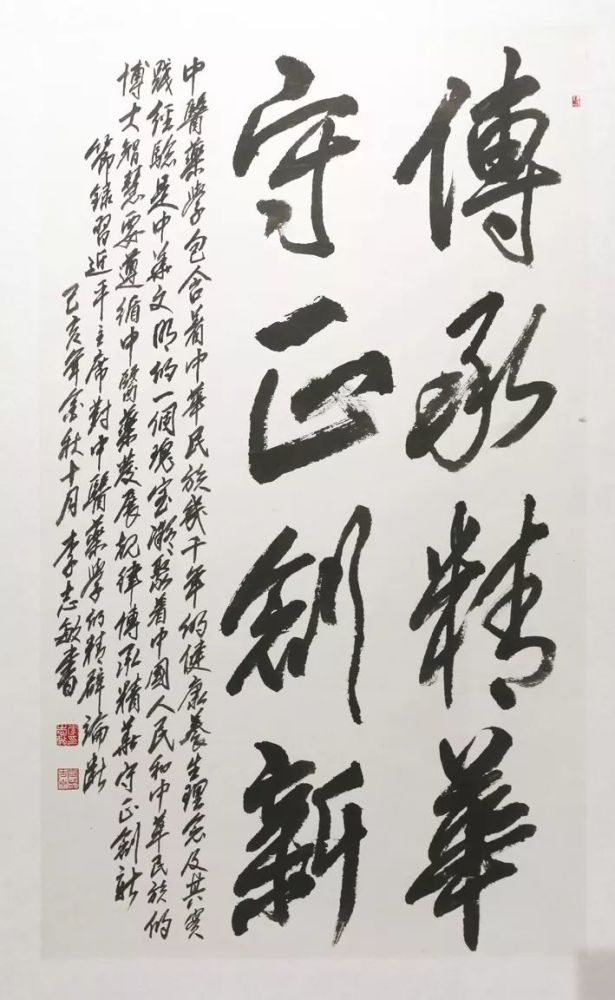 傳承精華
守正創新
中醫藥學包含着中華民族幾千年的健康養生理念及其實
踐經驗是中華文明的一個瑰寶凝聚着中國人民和中華民族的
博大智慧要遵循中醫藥發展規律傳承精華守正創新
節錄習近平主席對中醫藥學的精辟論斷
己亥年金秋十月李志敏書